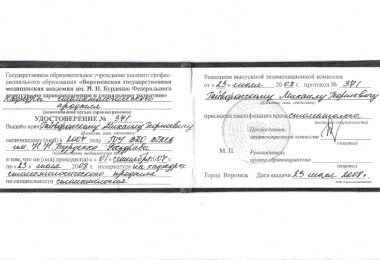 Государственное образовательное учреждение высшего профес-
сионального образования «Воронежская государственная
медицинская академия им. Н. Н. Бурденко Федерального
агентства по здравоохранению и социальному развитию»
кафедра стоматологического
профиля
УДОСТОВЕРЕНИЕ № 341
Выдано врачу Михаилу
(фамилия, имя, отчество)
окончившему в 2007 году ГОУ ВПО ВГМА
им. Н.Н. Бурденко Росздрава
в том, что он (она) проходил(а) с «01» сентября 07 г.
по «23» июля 2008 г. интернатуру на кафедре
стоматологического профиля
по специальности стоматология
Решением выпускной экзаменационной комиссии
от «23» июля 2008 г., протокол № 341
Михаилу
(фамилия, имя, отчество)
присвоена квалификация врача стоматолога
Председатель
экзаменационной комиссии
М. П.
Руководитель
органа здравоохранения
Город Воронеж Дата выдачи 23 июля 2008 г.